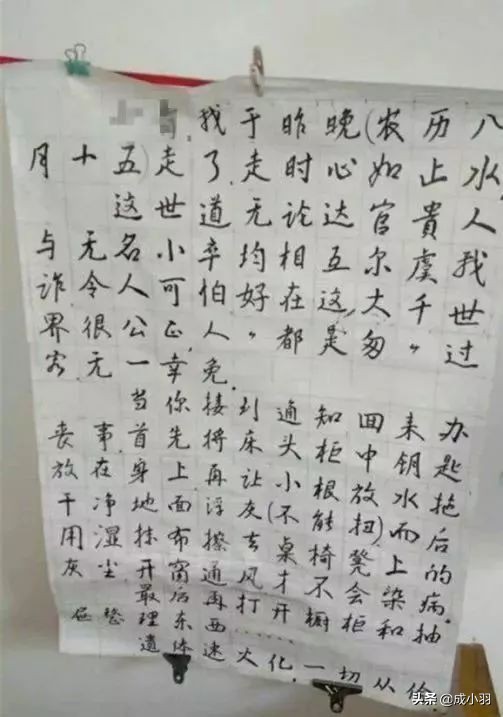 找于昨晚(农历八
月十五)走了,走时心如止水.
这世道无论达官貴人
与无名小卒均相互尔虞我
诈令人可怕."好在这大千世
界很公正,人人都是匆匆过
客,无一幸免."
当你接到通知来办
丧事首先将床头柜中钥匙
放在身上再让小根放水拖
干净地面浮灰(不能扭)而后
用湿抹布擦去桌椅凳上的
灰尘开窗通风才不会染病.
最后再打开橱柜和抽
屉整理东西......
遗体速火化,一切从俭
头条 @成小羽